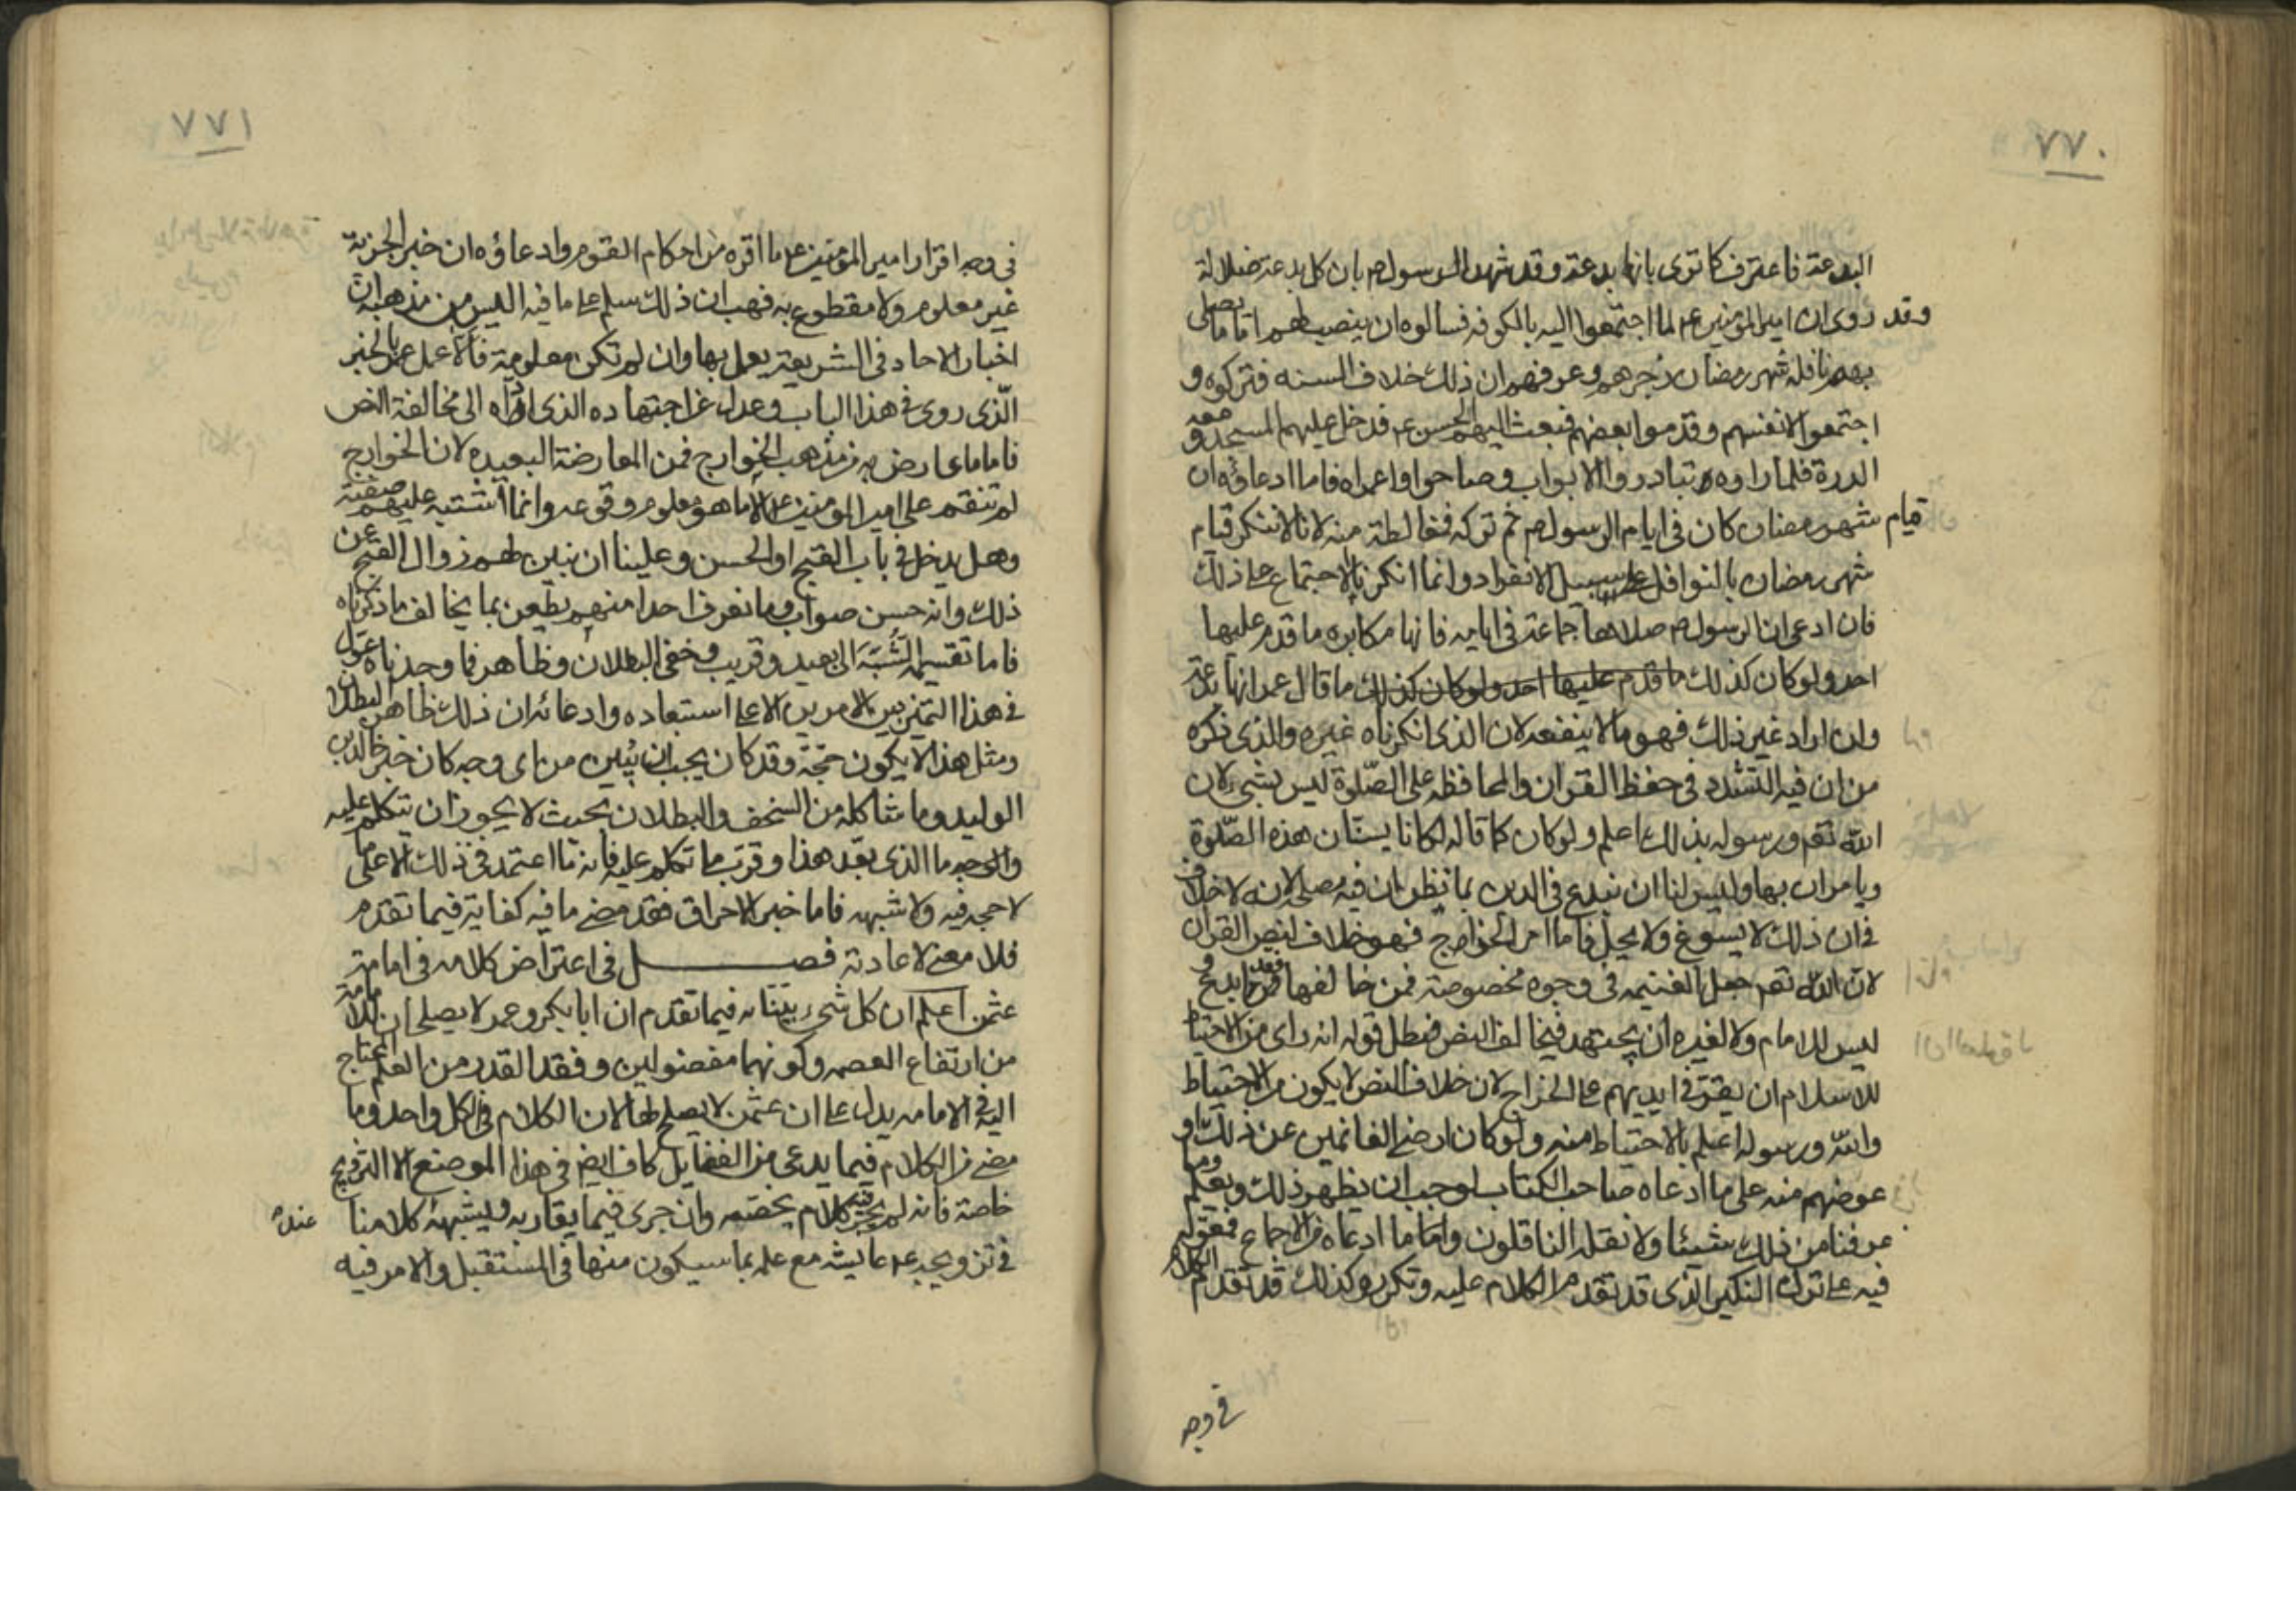 ٧٧٠
البدعة فاعترف كما ترى بانها بدعة وقد شهد الرسول ص بان كل بدعة ضلالة
وقد روى ان امير المؤمنين ع لما اجتمعوا اليه بالكوفه فسالوه ان ينصب لهم اماما يصلى
بهم نافلة شهر رمضان زجرهم وعرفهم ان ذلك خلاف السنه فتركوه و
اجتمعوا لانفسهم وقدموا بعضهم فبعث اليهم الحسن ع فدخل عليهم المسجد و معه
الدرة فلما راوه تبادروا الابواب وصاحوا واعمراه فاما ادعاؤه ان
قيام شهر رمضان كان فى ايام الرسول ص ثم تركه فمغالطة منه لانا لا ننكر قيام
شهر رمضان بالنوافل على سبيل الانفراد وانما انكرنا الاجتماع على ذلك
فان ادعى ان الرسول ص صلاها جماعة فى ايامه فانها مكابره ما قدم عليها
احد ولو كان كذلك ما قدم عليها احد ولو كان كذلك ما قال عمر انها بدعة
وان اراد غير ذلك فهو مما لا ينفعه لان الذى انكرناه غيره والذى ذكره
من ان فيه التشدد فى حفظ القران والمحافظه على الصلوة ليس بشىء لان
الله تقم ورسوله بذلك اعلم ولو كان كما قاله لكانا يسنان هذه الصلوة
ويامران بها وليس لنا ان نبدع فى الدين بما نظن ان فيه مصلحة لانه لا خلاف
فى ان ذلك لا يسوغ ولا يحل فاما امر الخراج فهو خلاف لنص القران
لان الله تقم جعل الغنيمه فى وجوه مخصوصة فمن خالفها فقد ابدع و
ليس للامام ولا لغيره ان يجتهد فيخالف النص فبطل قوله انه راى من الاحتياط
للاسلام ان يقر فى ايديهم على الخراج لان خلاف النص لا يكون من الاحتياط
والله ورسوله اعلم بالاحتياط منه ولو كان ارضى الغانمين عن ذلك او
عوضهم منه على ما ادعاه صاحب الكتاب لوجب ان يظهر ذلك ويعلم وما
عرفنا من ذلك شيئا ولا نقله الناقلون واما ما ادعاه من الاجماع فمعوله
فيه على ترك النكير الذى قد تقدم الكلام عليه وتكرر وكذلك قد تقدم الكلام
فى وجه
٧٧١
فى وجه اقرار امير المؤمنين ع ما اقره من احكام القوم وادعاؤه ان خبر الجزية
غير معلوم ولا مقطوع به فهب ان ذلك سلم على ما فيه اليس من مذهبه ان
اخبار الاحاد فى الشريعة يعمل بها وان لم تكن معلومة فالا عمل عمر بالخبر
الذى روى فى هذا الباب وعدل عن اجتهاده الذى اداه الى مخالفة النص
فاما ما عارض به من مذهب الخوارج فمن المعارضة البعيده لان الخوارج
لم تنقم على امير المؤمنين ع الا ما هو معلوم وقوعه وانما اشتبه عليهم صفته
وهل يدخل فى باب القبح او الحسن وعلينا ان نبين لهم زوال القبح عن
ذلك وانه حسن صواب وما نعرف احدا منهم يطعن بما يخالف ما ذكرناه
فاما تقسيمه الشبه الى بعيد وقريب وخفى البطلان وظاهر فما وجدناه عول
فى هذا التمييز بين الامرين الا على استبعاده وادعائه ان ذلك ظاهر البطلان
ومثل هذا لا يكون حجة وقد كان يجب ان يبين من اى وجه كان خبر خالد بن
الوليد وما شاكله من السخف والبطلان بحيث لا يجوز ان يتكلم عليه
والوجه ما الذى بعد هذا وقرب ما تكلم عليه فانه ما اعتمد فى ذلك الا على ما
لا حجه فيه ولا شبهه فاما خبر الاحراق فقد مضى ما فيه كفاية فيما تقدم
فلا معنى لاعادته فصل فى اعتراض كلامه فى امامة
عثمن اعلم ان كل شىء بيناه فيما تقدم ان ابا بكر وعمر لا يصلحان للامامة
من ارتفاع العصمه وكونهما مفضولين وفقد القدر من العلم المحتاج
اليه فى الامامه يدل على ان عثمن لا يصلح لها لان الكلام فى الكل واحد وما
مضى من الكلام فيما يدعى من الفضايل كاف ايضا فى هذا الموضع الا التزويج
خاصة فانه لم يجر فيه كلام يخصه وان جرى فيما يقاربه ويشبهه كلامنا
فى تزويجه ع عايشه مع علمه بما سيكون منها فى المستقبل والامر فيه